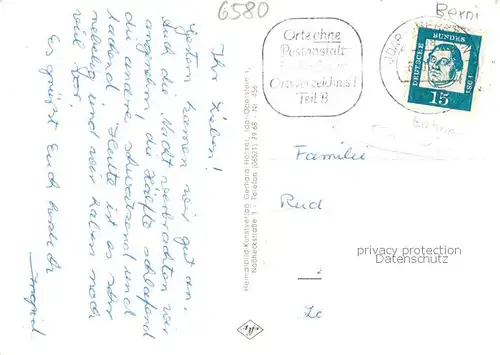 6580
Berni
Orte ohne
Postanstalt
Ortsverzeichnis!
Teil B
DEUTSCHE BUNDES
15
Ihr Lieben!
Gestern kamen wir gut an.
Auch die Nacht verbrachten wir
angenehm, die Hälfte schlafend
die andere schwatzend und
lachend. Heute ist es sehr
neblig und wir haben noch
viel vor.
Es grüßt Euch herzlich
Ingrid
Heimatbild-Kunstverlag Gerhard Hassel, Idar-Oberstein 1
Naßheckstraße 1 - Telefon (06571) 79 68 - Nr. 456
Familie
Rud
privacy protection
Datenschutz